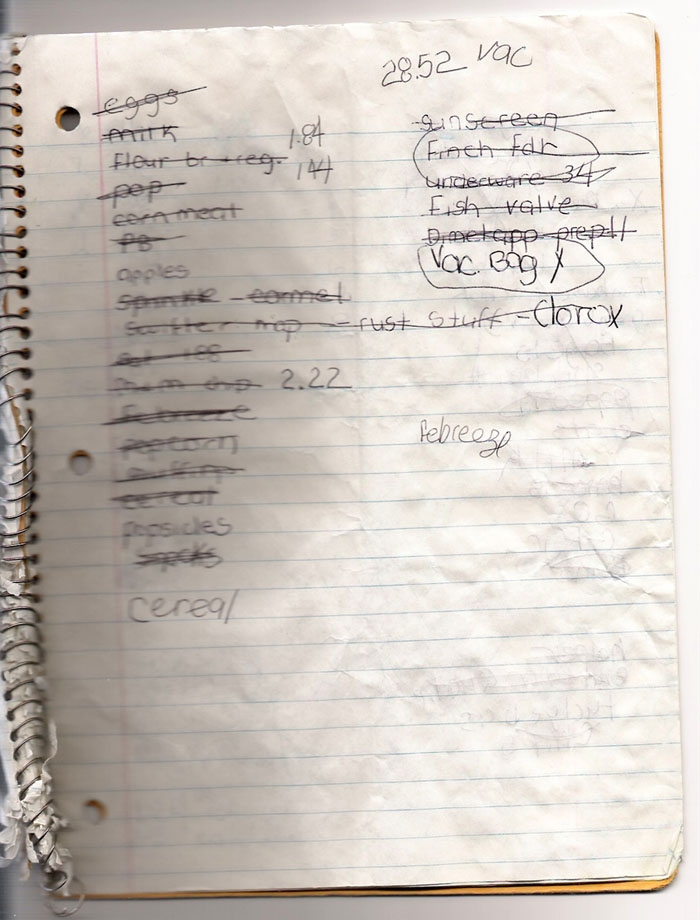 28.52 vac
eggs
milk
1.84
flour br + reg.
1.44
pop
corn meal
PB
apples
sprinkle - carmel
mop - rust stuff - Clorox
2.22
Febreeze
popcorn
muffin
cereal
popsicles
cereal
sunscreen
Finch fdr
underware 34
Fish valve
Dimetapp prep H
Vac. Bag X
Febreeze